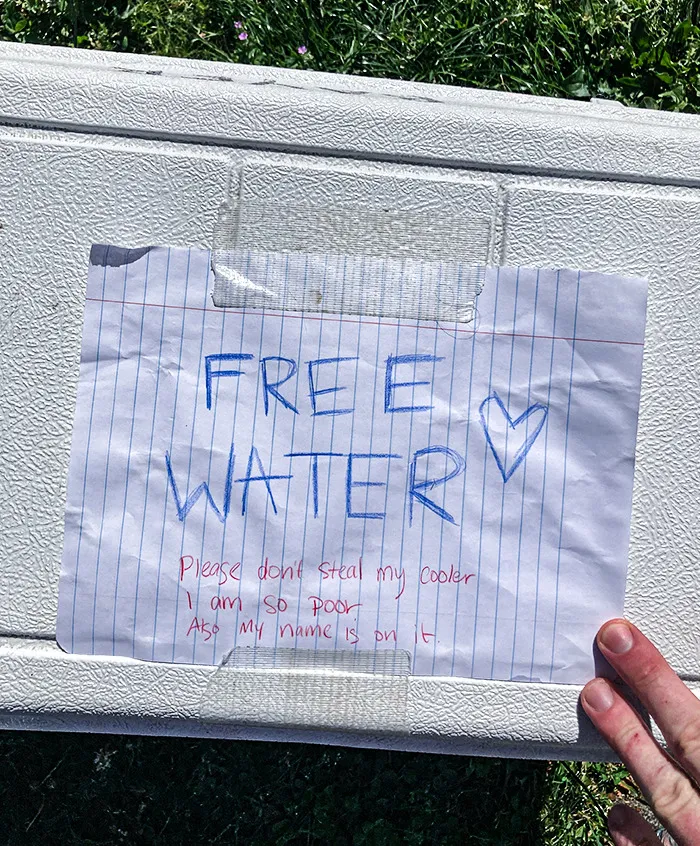 FREE
WATER
Please don't steal my cooler
I am so poor
Also my name is on it.